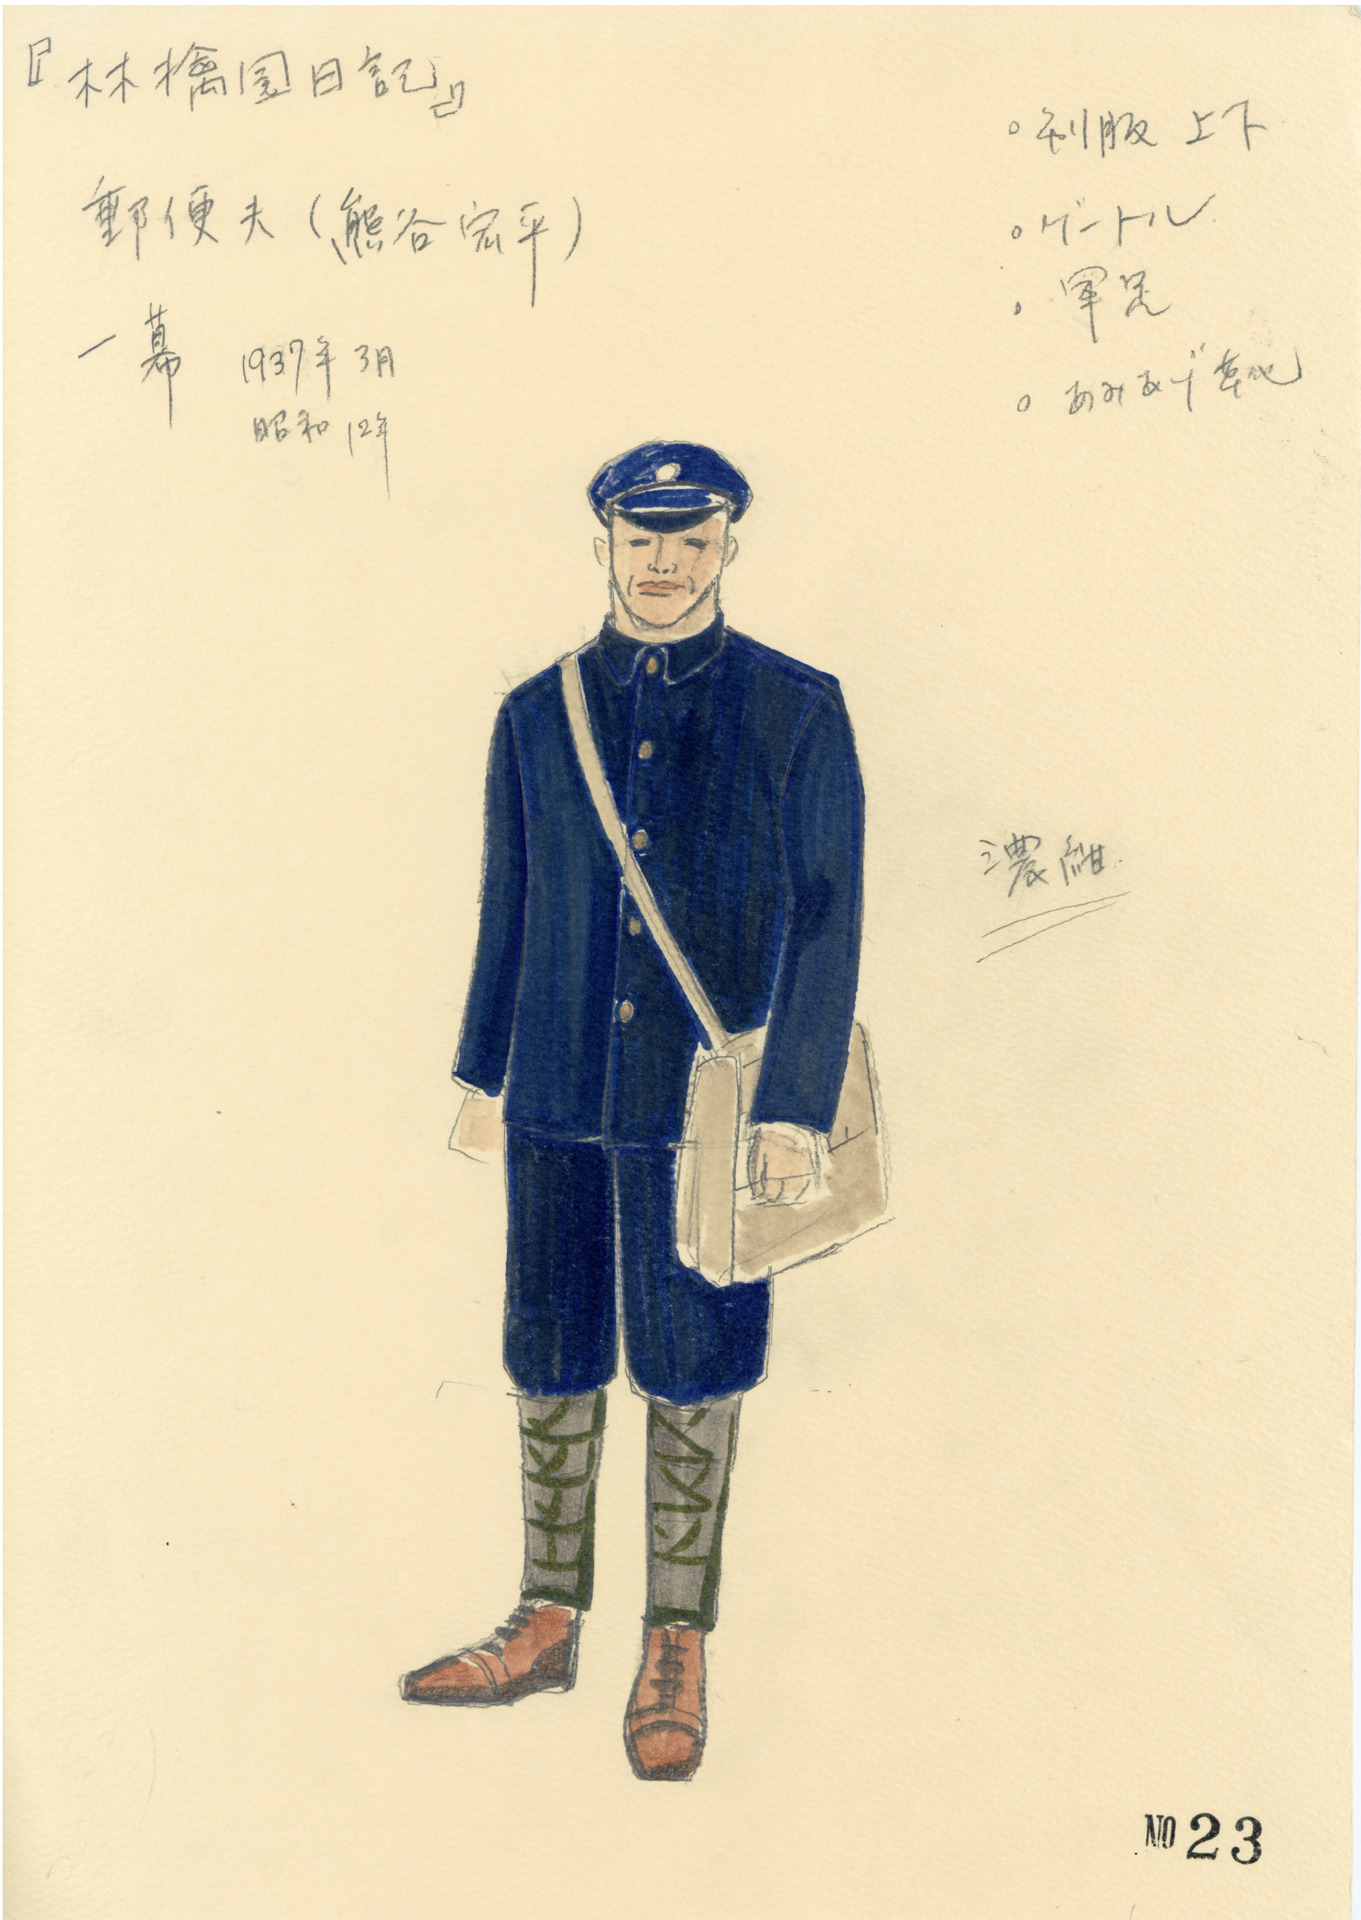 『林檎園日記』
郵便夫（熊谷宏平）
一幕 1937年3月
昭和12年
◦制服 上下
◦ゲートル
◦軍足
◦あみあげ靴
濃紺
No 23